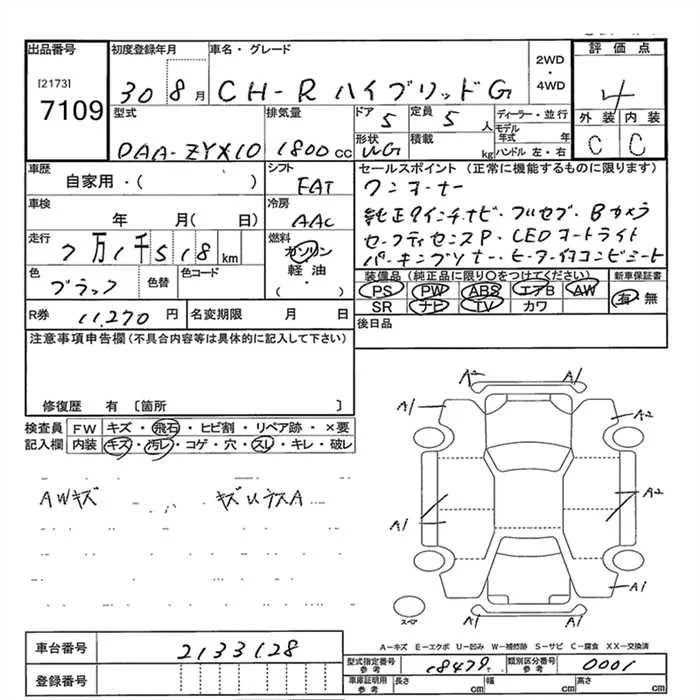 出品番号 初度登録年月 車名・グレード 2WD・4WD 評価点
[2173]
7109 30 8月 CH-R ハイブリッドG 4
型式 排気量 ドア 5 定員 5人 ディーラー・並行 外装 内装
DAA-ZYX10 1800cc 形状 WG 積載 kg モデル年式 年 ハンドル 左・右 C C
車歴 シフト セールスポイント (正常に機能するものに限ります)
自家用・( ) FAT ワンオーナー
車検 冷房 純正9インチナビ・フルセグ・Bカメラ
年 月( 日) AAC セーフティセンスP・LEDオートライト
走行 燃料 パーキングソナー・ヒーター付コンビシート
7万1千518km ガソリン
色 色替 色コード 軽油 装備品 (純正品に限り○をつけてください) 新車保証書
ブラック ・( ) PS PW ABS エアB AW 有・無
SR ナビ TV カワ
R券 11,270円 名変期限 月 日 後日品
注意事項申告欄(不具合内容等は具体的に記入して下さい)
修復歴 有 〔箇所 〕
検査員 FW キズ・飛石・ヒビ割・リペア跡・×要
記入欄 内装 キズ・汚レ・コゲ・穴・スレ・キレ・破レ
AWキズ
A2 A1
A1 A2
A1 A2
A1 A1
スペア
A-キズ E-エクボ U-凹み W-補修跡 S-サビ C-腐食 XX-交換済
車台番号 2133128 型式指定番号 参考 18479 類別区分番号 参考 0001
登録番号 車庫証明用 参考 長さ cm 幅 cm 高さ cm